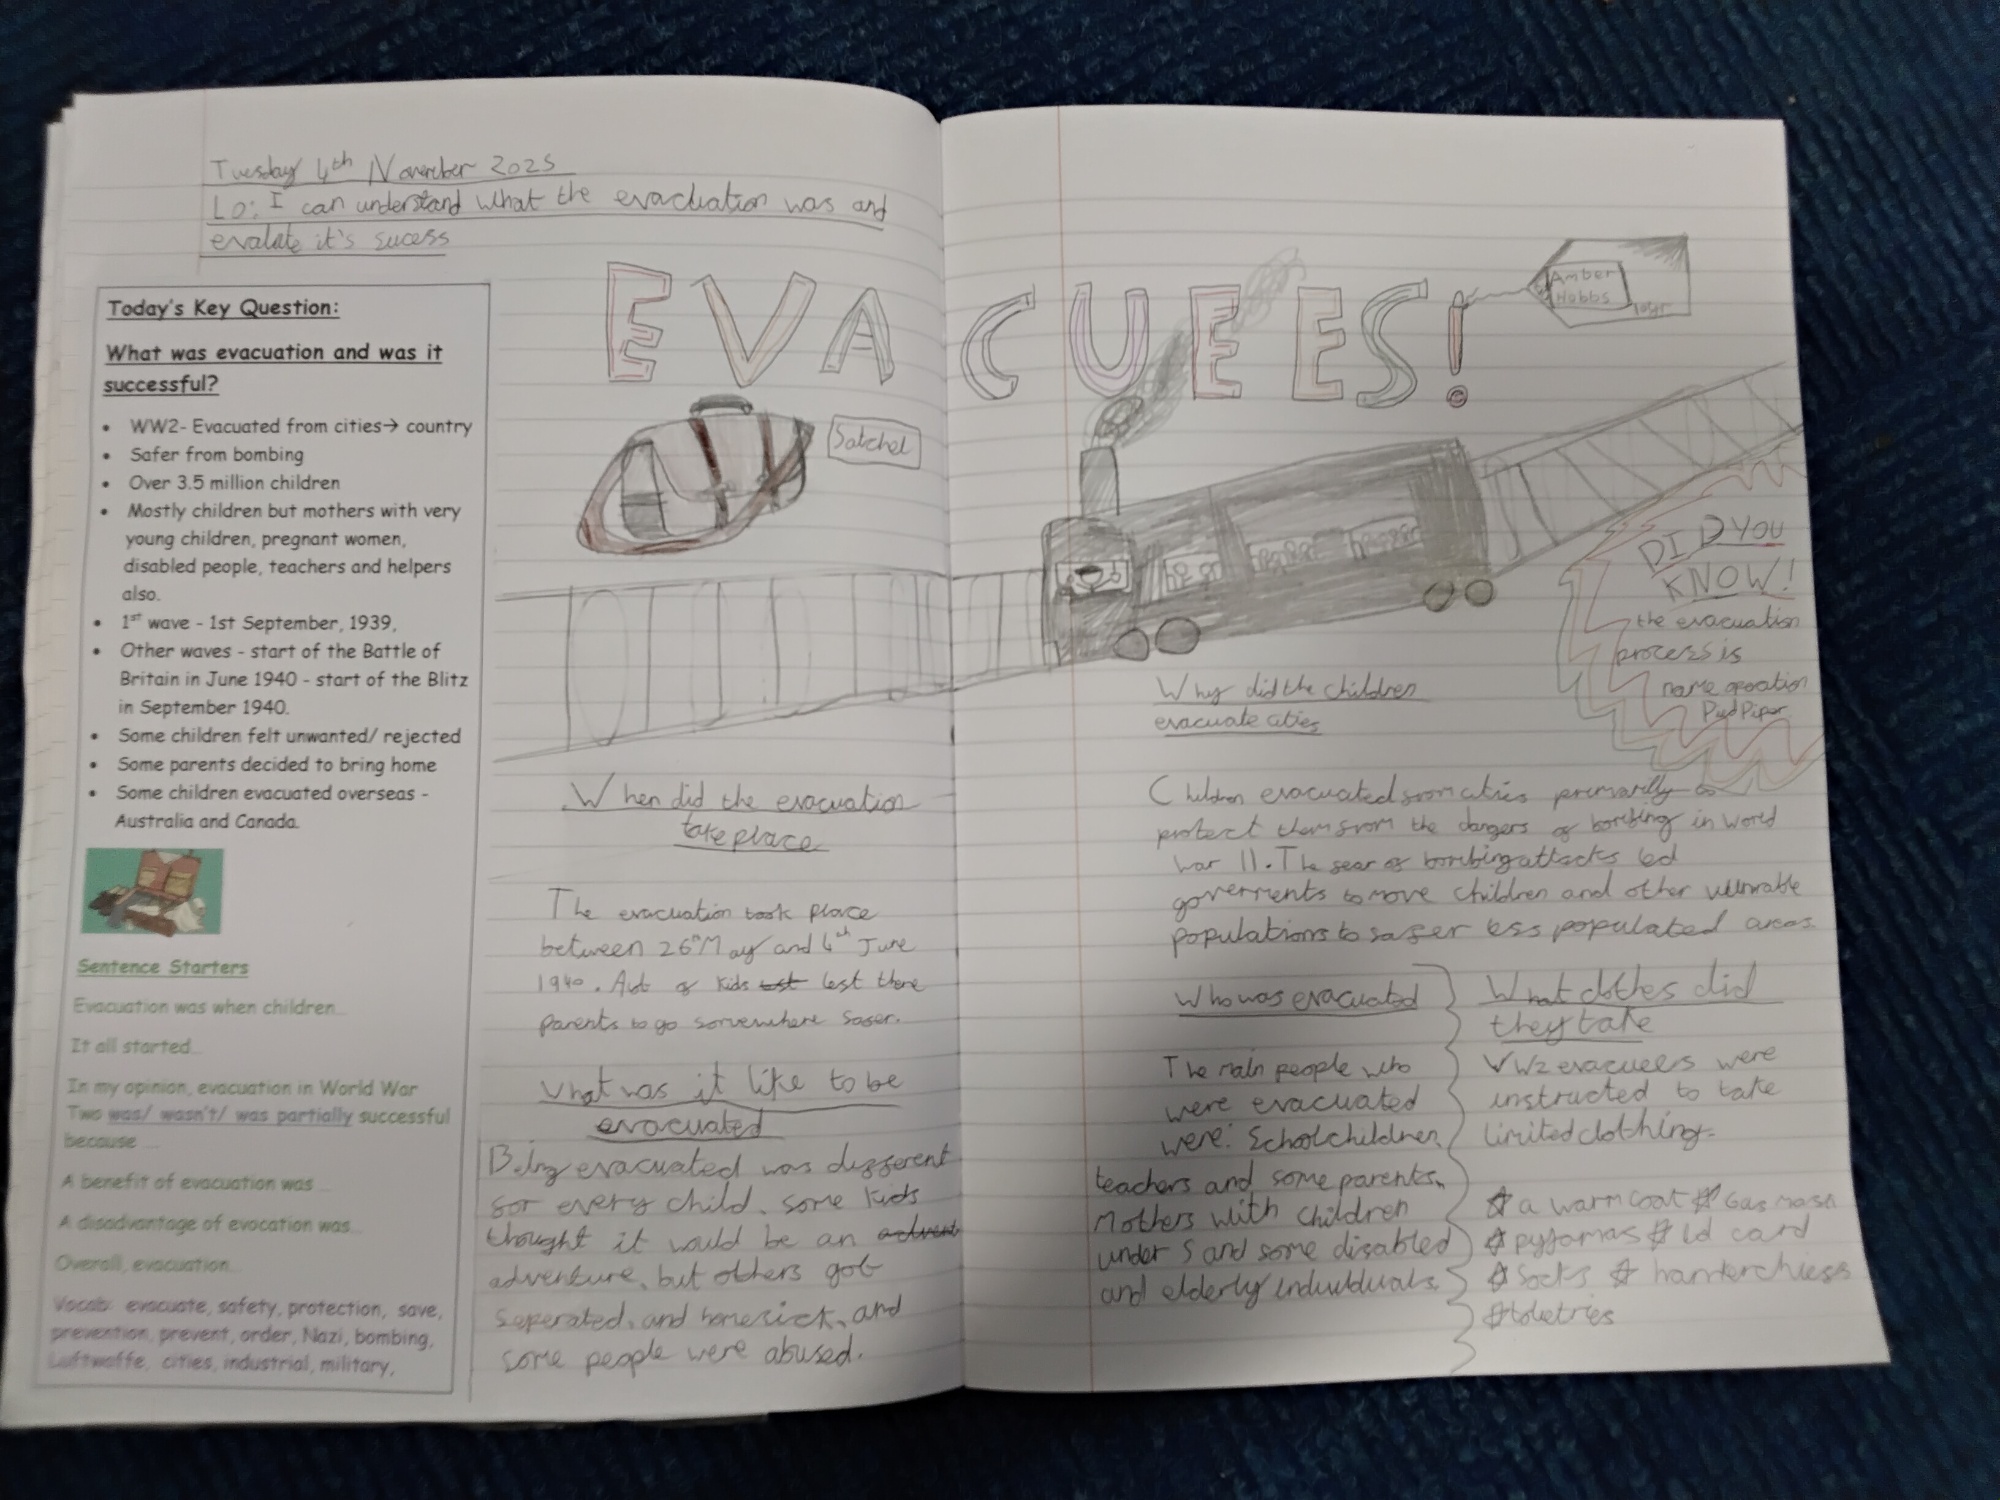 Tuesday 4th November 2025
Lo: I can understand what the evacuation was and
evalute it's sucess
Today's Key Question:
What was evacuation and was it
successful?
• WW2- Evacuated from cities→ country
• Safer from bombing
• Over 3.5 million children
• Mostly children but mothers with very
young children, pregnant women,
disabled people, teachers and helpers
also.
• 1st wave - 1st September, 1939,
• Other waves - start of the Battle of
Britain in June 1940 - start of the Blitz
in September 1940.
• Some children felt unwanted/ rejected
• Some parents decided to bring home
• Some children evacuated overseas -
Australia and Canada.
Sentence Starters
Evacuation was when children...
It all started...
In my opinion, evacuation in World War
Two was/ wasn't/ was partially successful
because ...
A benefit of evacuation was ...
A disadvantage of evocation was...
Overall, evacuation...
Vocab: evacuate, safety, protection, save,
prevention, prevent, order, Nazi, bombing,
Luftwaffe, cities, industrial, military,
EVACUEES!
Amber
Hobbs
10yr
Satchel
When did the evacuation
take place
The evacuation took place
between 26th May and 4th June
1940. of kids lest there
parents to go somewhere safer.
What was it like to be
evacuated
Being evacuated was different
for every child. some kids
thought it would be an advent
adventure, but others got
seperated, and homesick, and
some people were abused.
DID YOU
KNOW!
the evacuation
process is
name opoation
Pied Piper
Why did the children
evacuate cities
Children evacuated from cities primarily to
protect them from the dangers of bombing in World
War II. The fear of bombing attacks led
goverments to move children and other vulnrable
populations to safer less populated areas.
Who was evacuated
The main people who
were evacuated
were: School children,
teachers and some parents.
Mothers with children
under 5 and some disabled
and elderly induviduals.
What clothes did
they take
WW2 evacueers were
instructed to take
limited clothing.
a warm coat Gas mask
pyjamas Id card
Socks hankerchiefs
toletries